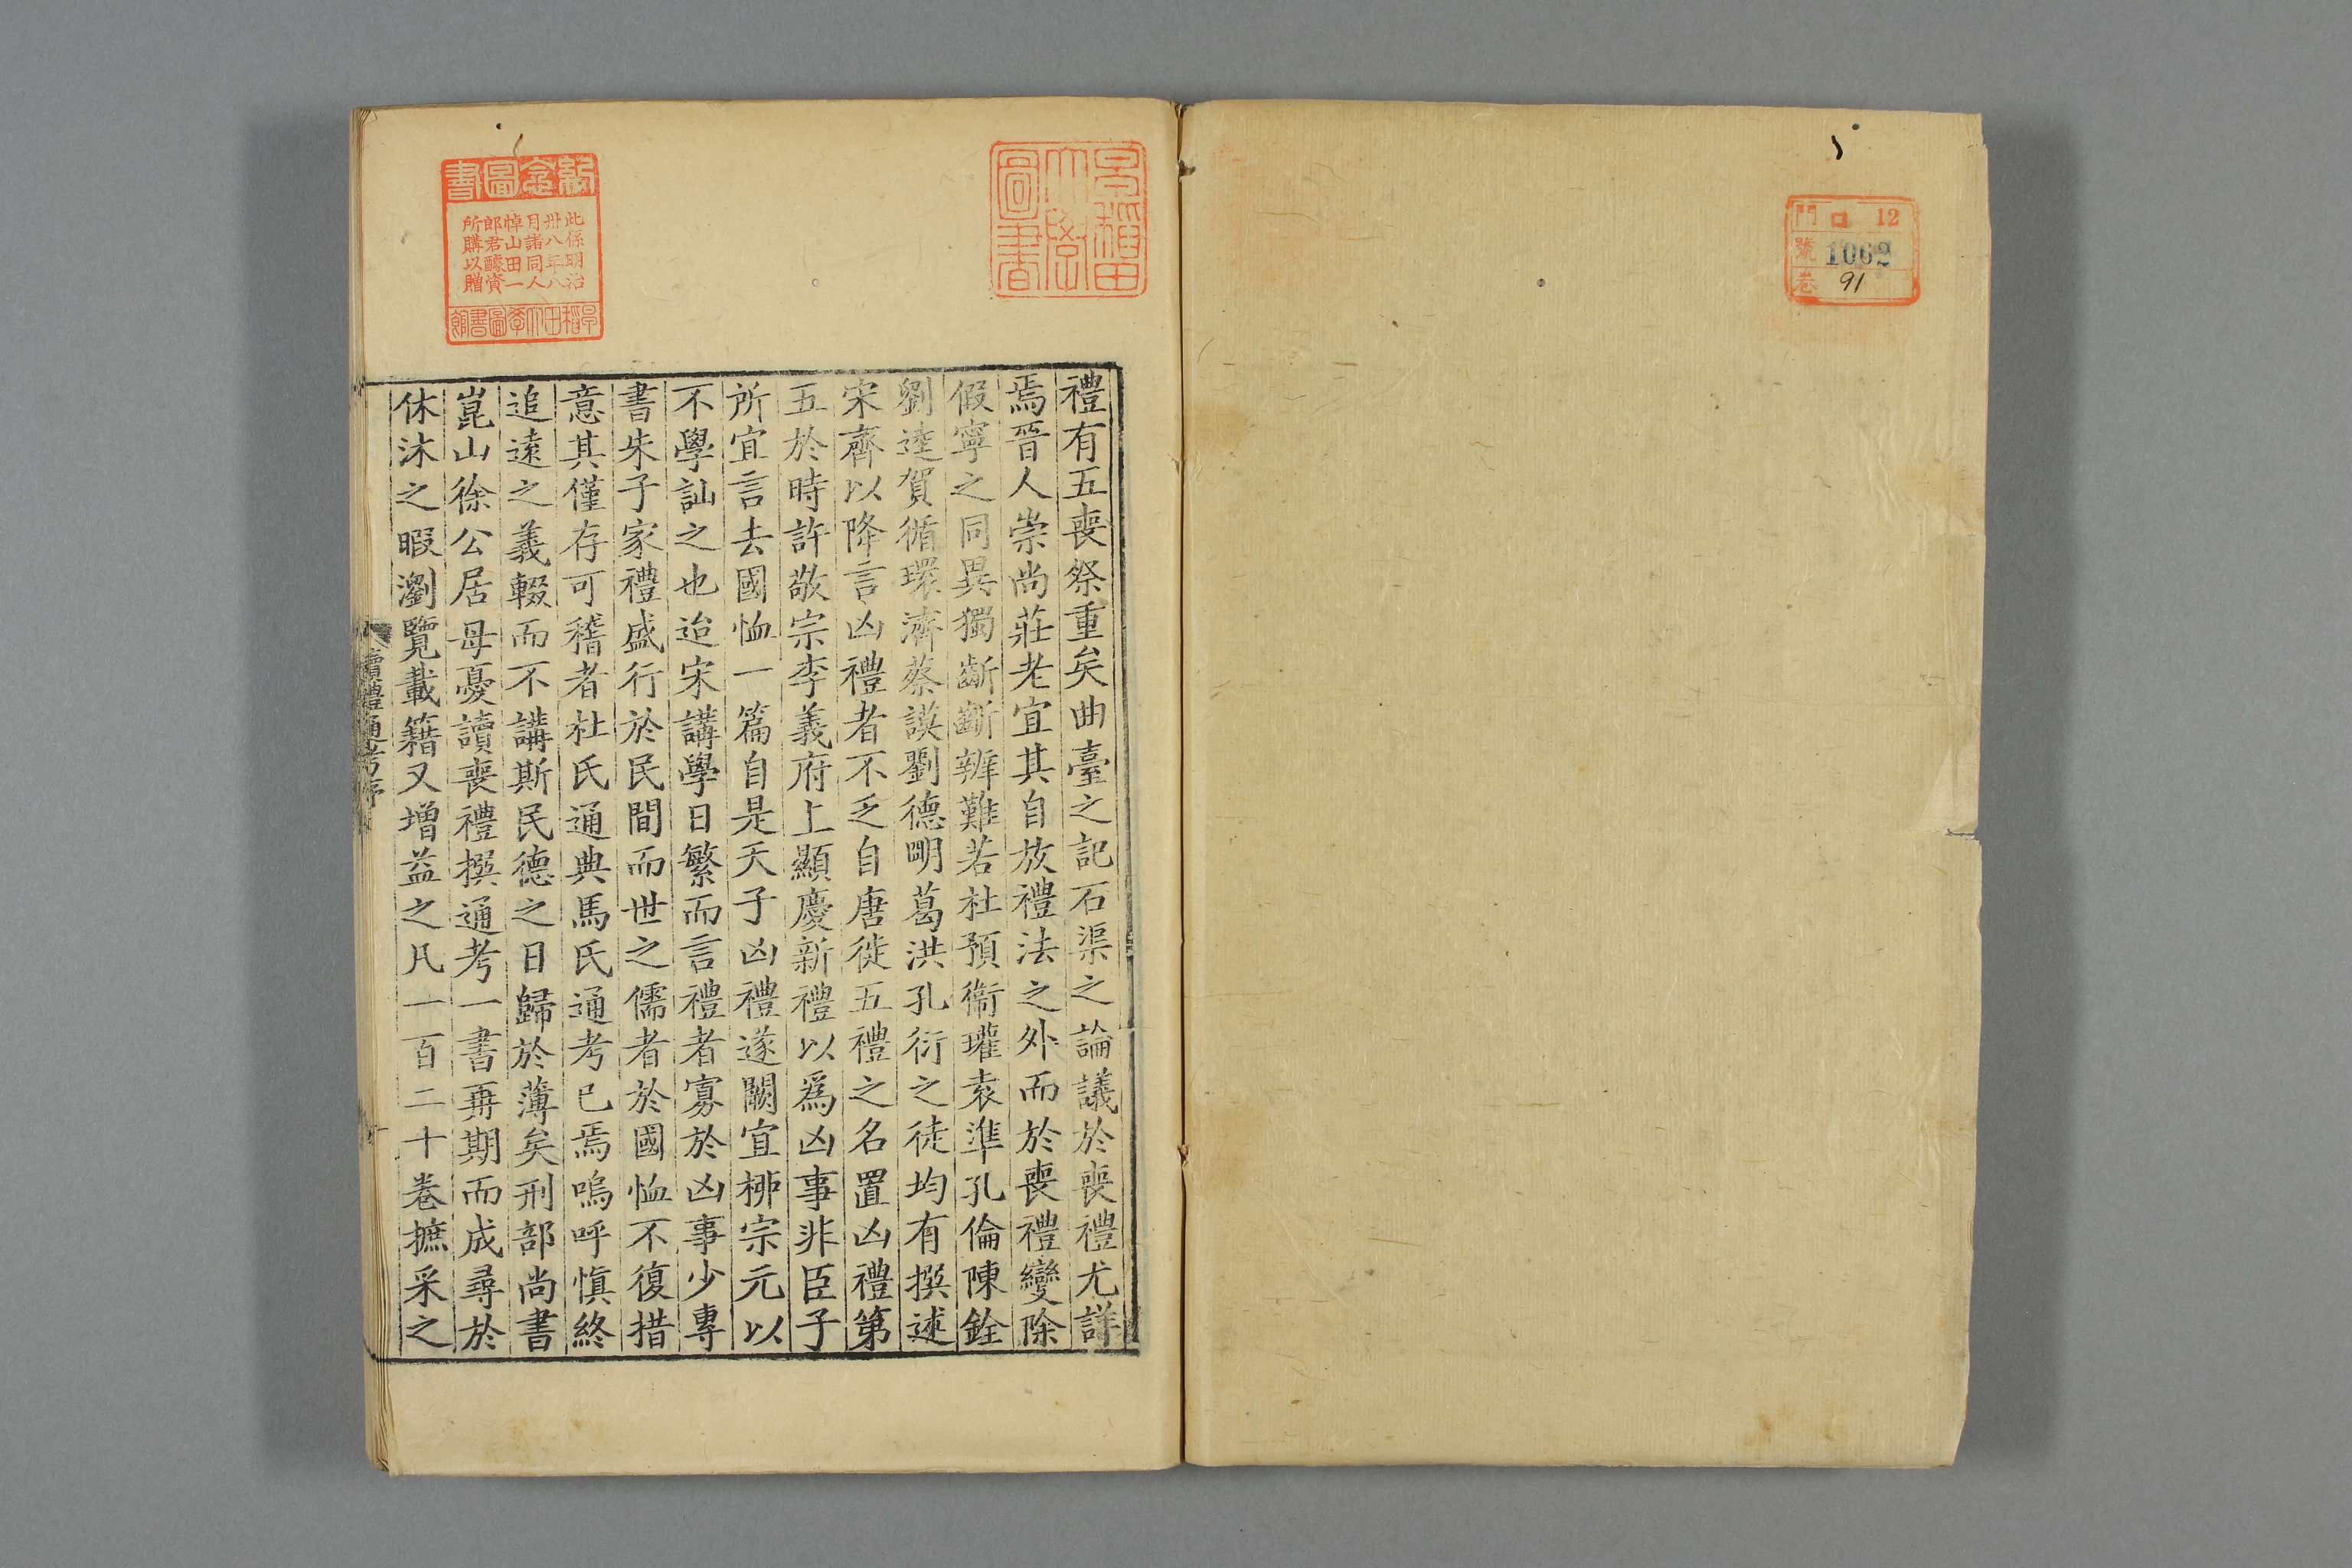 門 口 12
號 1062
卷 91
早稲田
大學
圖書
紀念圖書
此係明治
卅八年八
月諸同人
悼山田一
郎君醵資
所購以贈
早稲田大學圖書館
禮有五喪祭重矣曲臺之記石渠之論議於喪禮尤詳
焉晉人崇尚莊老宜其自放禮法之外而於喪禮變除
假寧之同異獨齗齗辨難若杜預衞瓘袁準孔倫陳銓
劉逵賀循環濟蔡謨劉德明葛洪孔衍之徒均有撰述
宋齊以降言凶禮者不乏自唐徙五禮之名置凶禮第
五於時許敬宗李義府上顯慶新禮以爲凶事非臣子
所宜言去國恤一篇自是天子凶禮遂闕宜栁宗元以
不學訕之也迨宋講學日繁而言禮者寡於凶事少專
書朱子家禮盛行於民間而世之儒者於國恤不復措
意其僅存可稽者杜氏通典馬氏通考已焉嗚呼愼終
追遠之義輟而不講斯民德之日歸於薄矣刑部尚書
崑山徐公居母憂讀喪禮撰通考一書再期而成尋於
休沐之暇瀏覽載籍又增益之凡一百二十卷摭采之
讀禮通考序